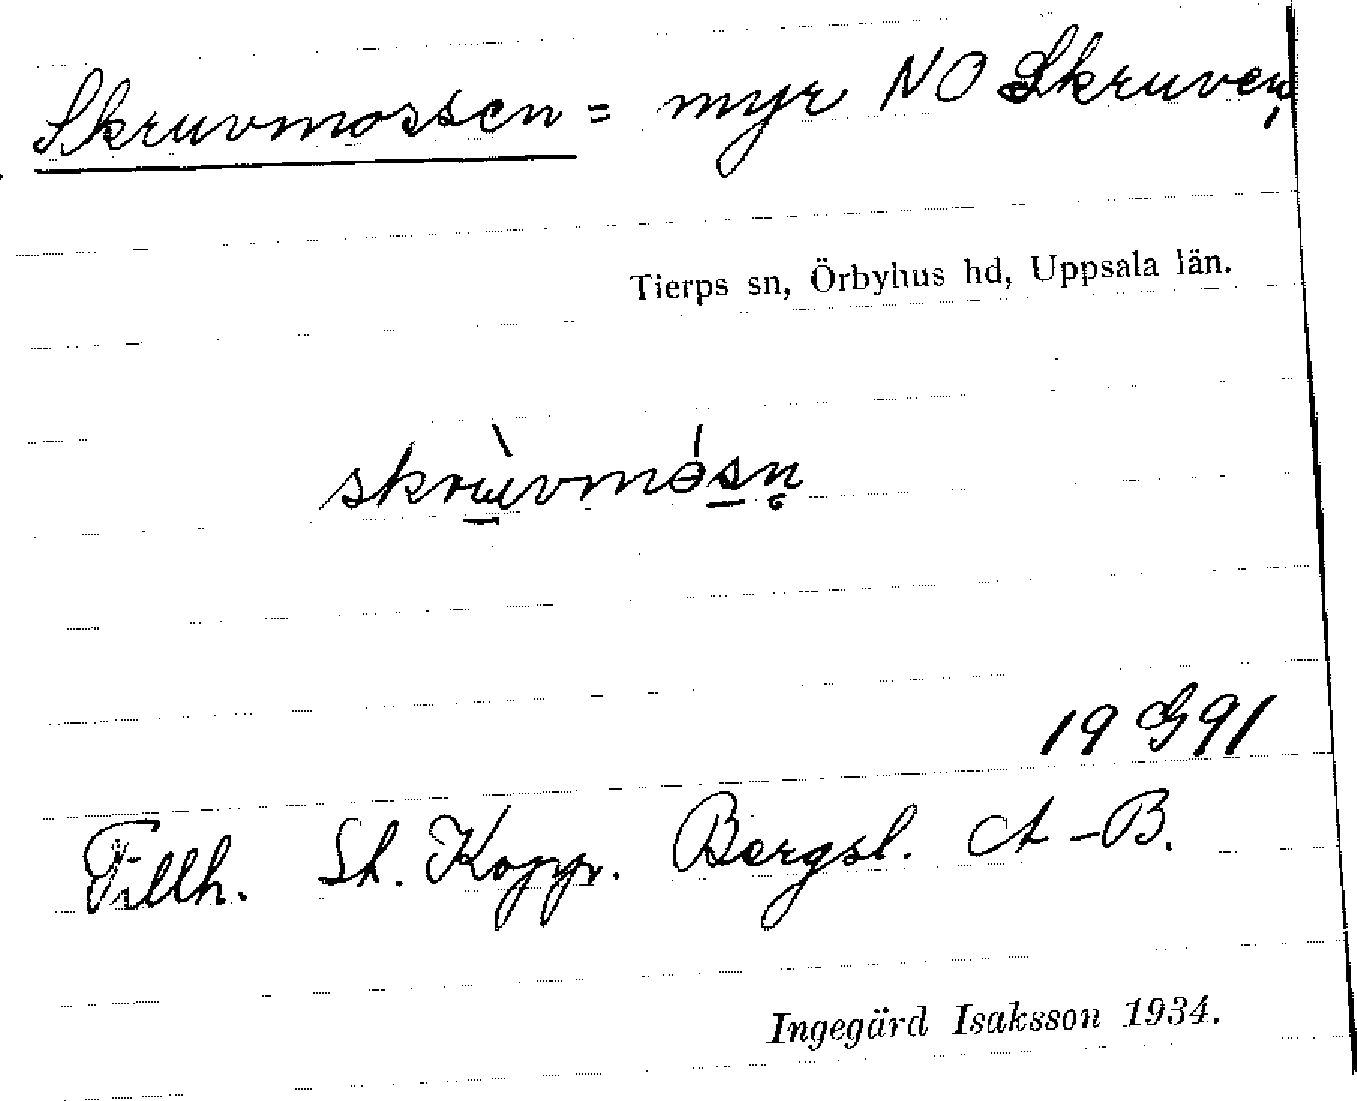 Skruvmossen = myr NO Skruven,
Tierps sn, Örbyhus hd, Uppsala län.
skrɯ̀vmósn̥
19 G 91
Tillh. St. Kopp. Bergsl. A-B.
Ingegärd Isaksson 1934.